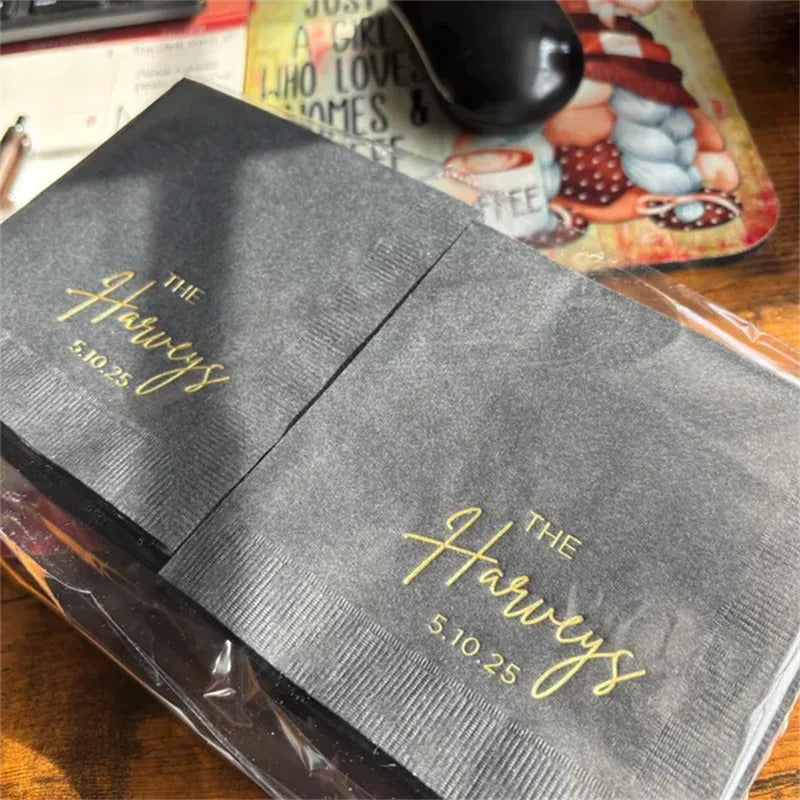 JUST
A GIRL
WHO LOVES
GNOMES &
COFFEE
COFFEE
THE
Harveys
5.10.25
THE
Harveys
5.10.25